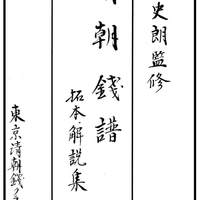 史朗監修
朝錢譜
拓本・解説集
東京清朝錢